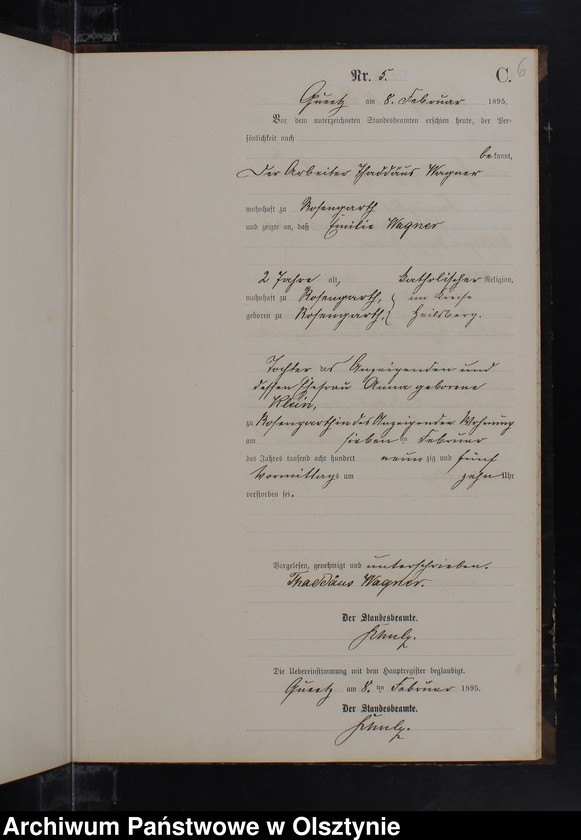 Nr. 5.
C. 6
Queetz am 8. Februar 1895.
Vor dem unterzeichneten Standesbeamten erschien heute, der Per-
sönlichkeit nach
bekannt,
Der Arbeiter Thaddäus Wagner
wohnhaft zu Rosengarth
und zeigte an, daß Emilie Wagner
2 Jahre alt, katholischer Religion,
wohnhaft zu Rosengarth, im Kreise
geboren zu Rosengarth, Heilsberg.
Tochter des Anzeigenden und
dessen Ehefrau Anna geborene
Klein,
zu Rosengarth in des Anzeigenden Wohnung
am sieben ten Februar
des Jahres tausend acht hundert neun zig und fünf
Vormittags um zehn Uhr
verstorben sei.
Vorgelesen, genehmigt und unterschrieben.
Thaddäus Wagner.
Der Standesbeamte.
Die Uebereinstimmung mit dem Hauptregister beglaubigt.
Queetz am 8. ten Februar 1895.
Der Standesbeamte.
Archiwum Państwowe w Olsztynie